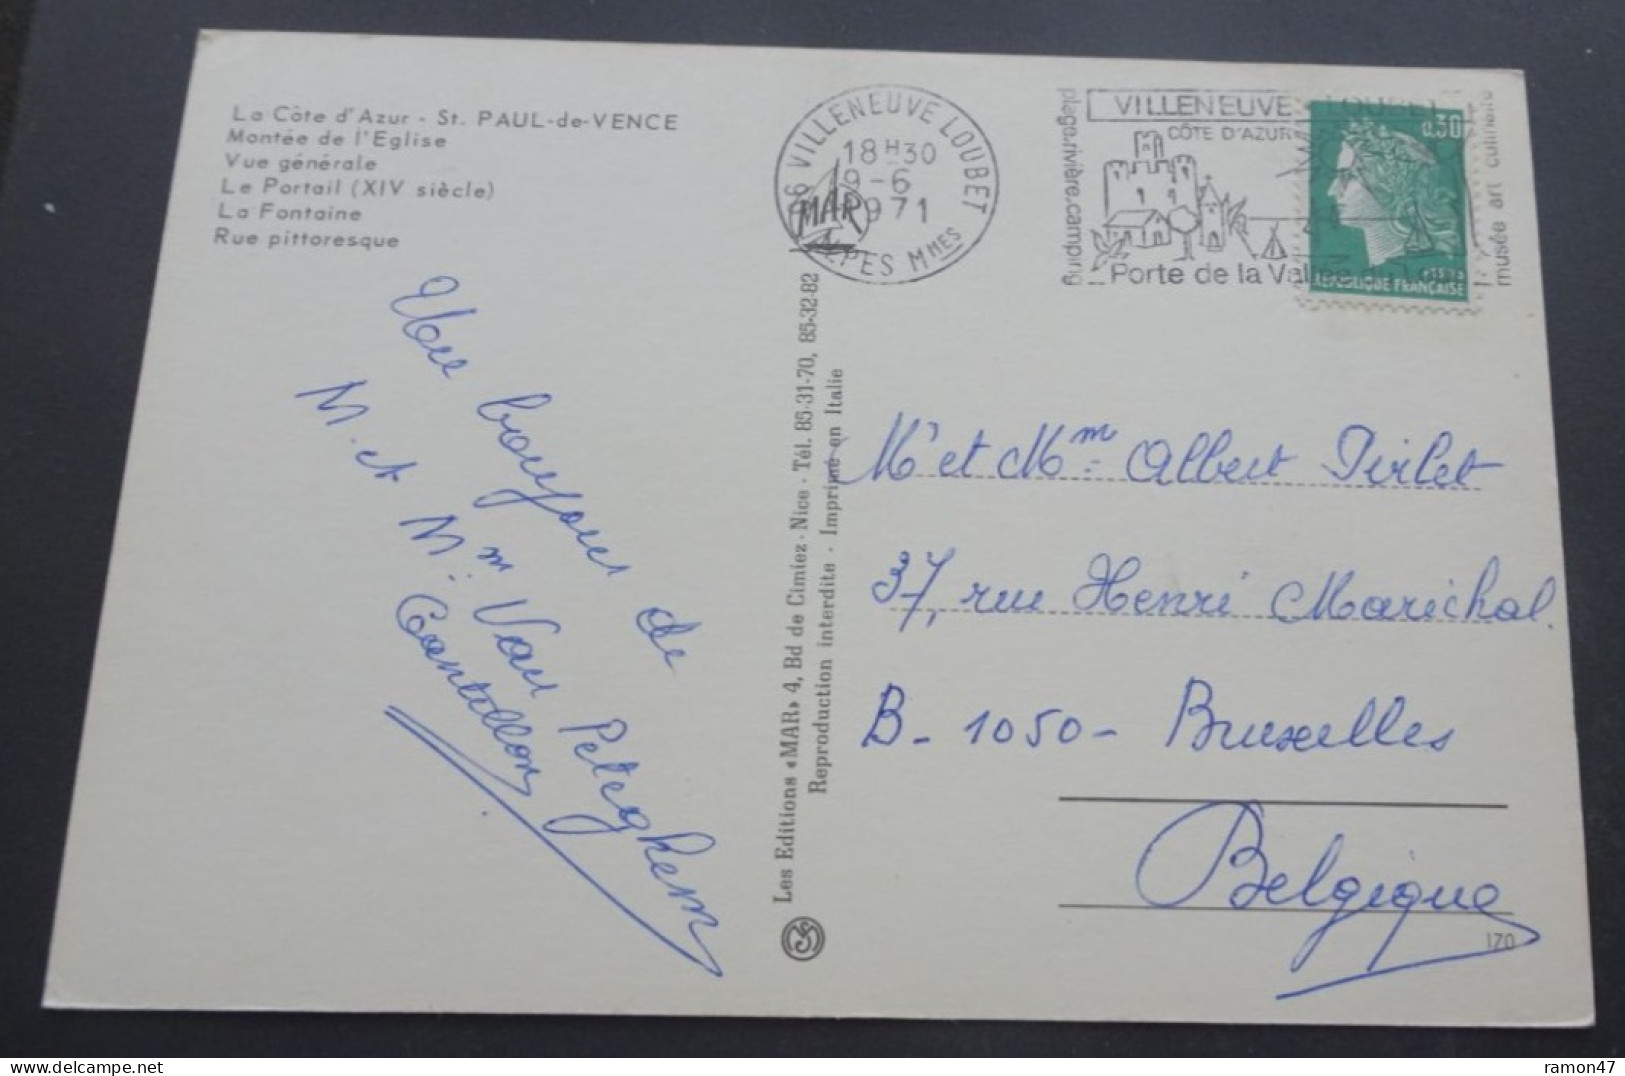 La Côte d'Azur - St. PAUL-de-VENCE
Montée de l'Eglise
Vue générale
Le Portail (XIV siècle)
La Fontaine
Rue pittoresque
Un bonjour de
M. et Mm. Van Peteghem
Cantillon
Les Editions «MAR» 4, Bd de Cimiez - Nice - Tél. 85-31-70, 85-32-82
Reproduction interdite - Imprimé en Italie
MAR
06 VILLENEUVE LOUBET
18H30
9-6
1971
ALPES MMES
plage.rivière.camping
VILLENEUVE LOUBET
CÔTE D'AZUR
Porte de la Vallée du Loup
musée art culinaire
0,30
REPUBLIQUE FRANÇAISE
Mr et Mm. Albert Pirlet
37, rue Henri Marichal.
B - 1050 - Bruxelles
Belgique
170
ramon47